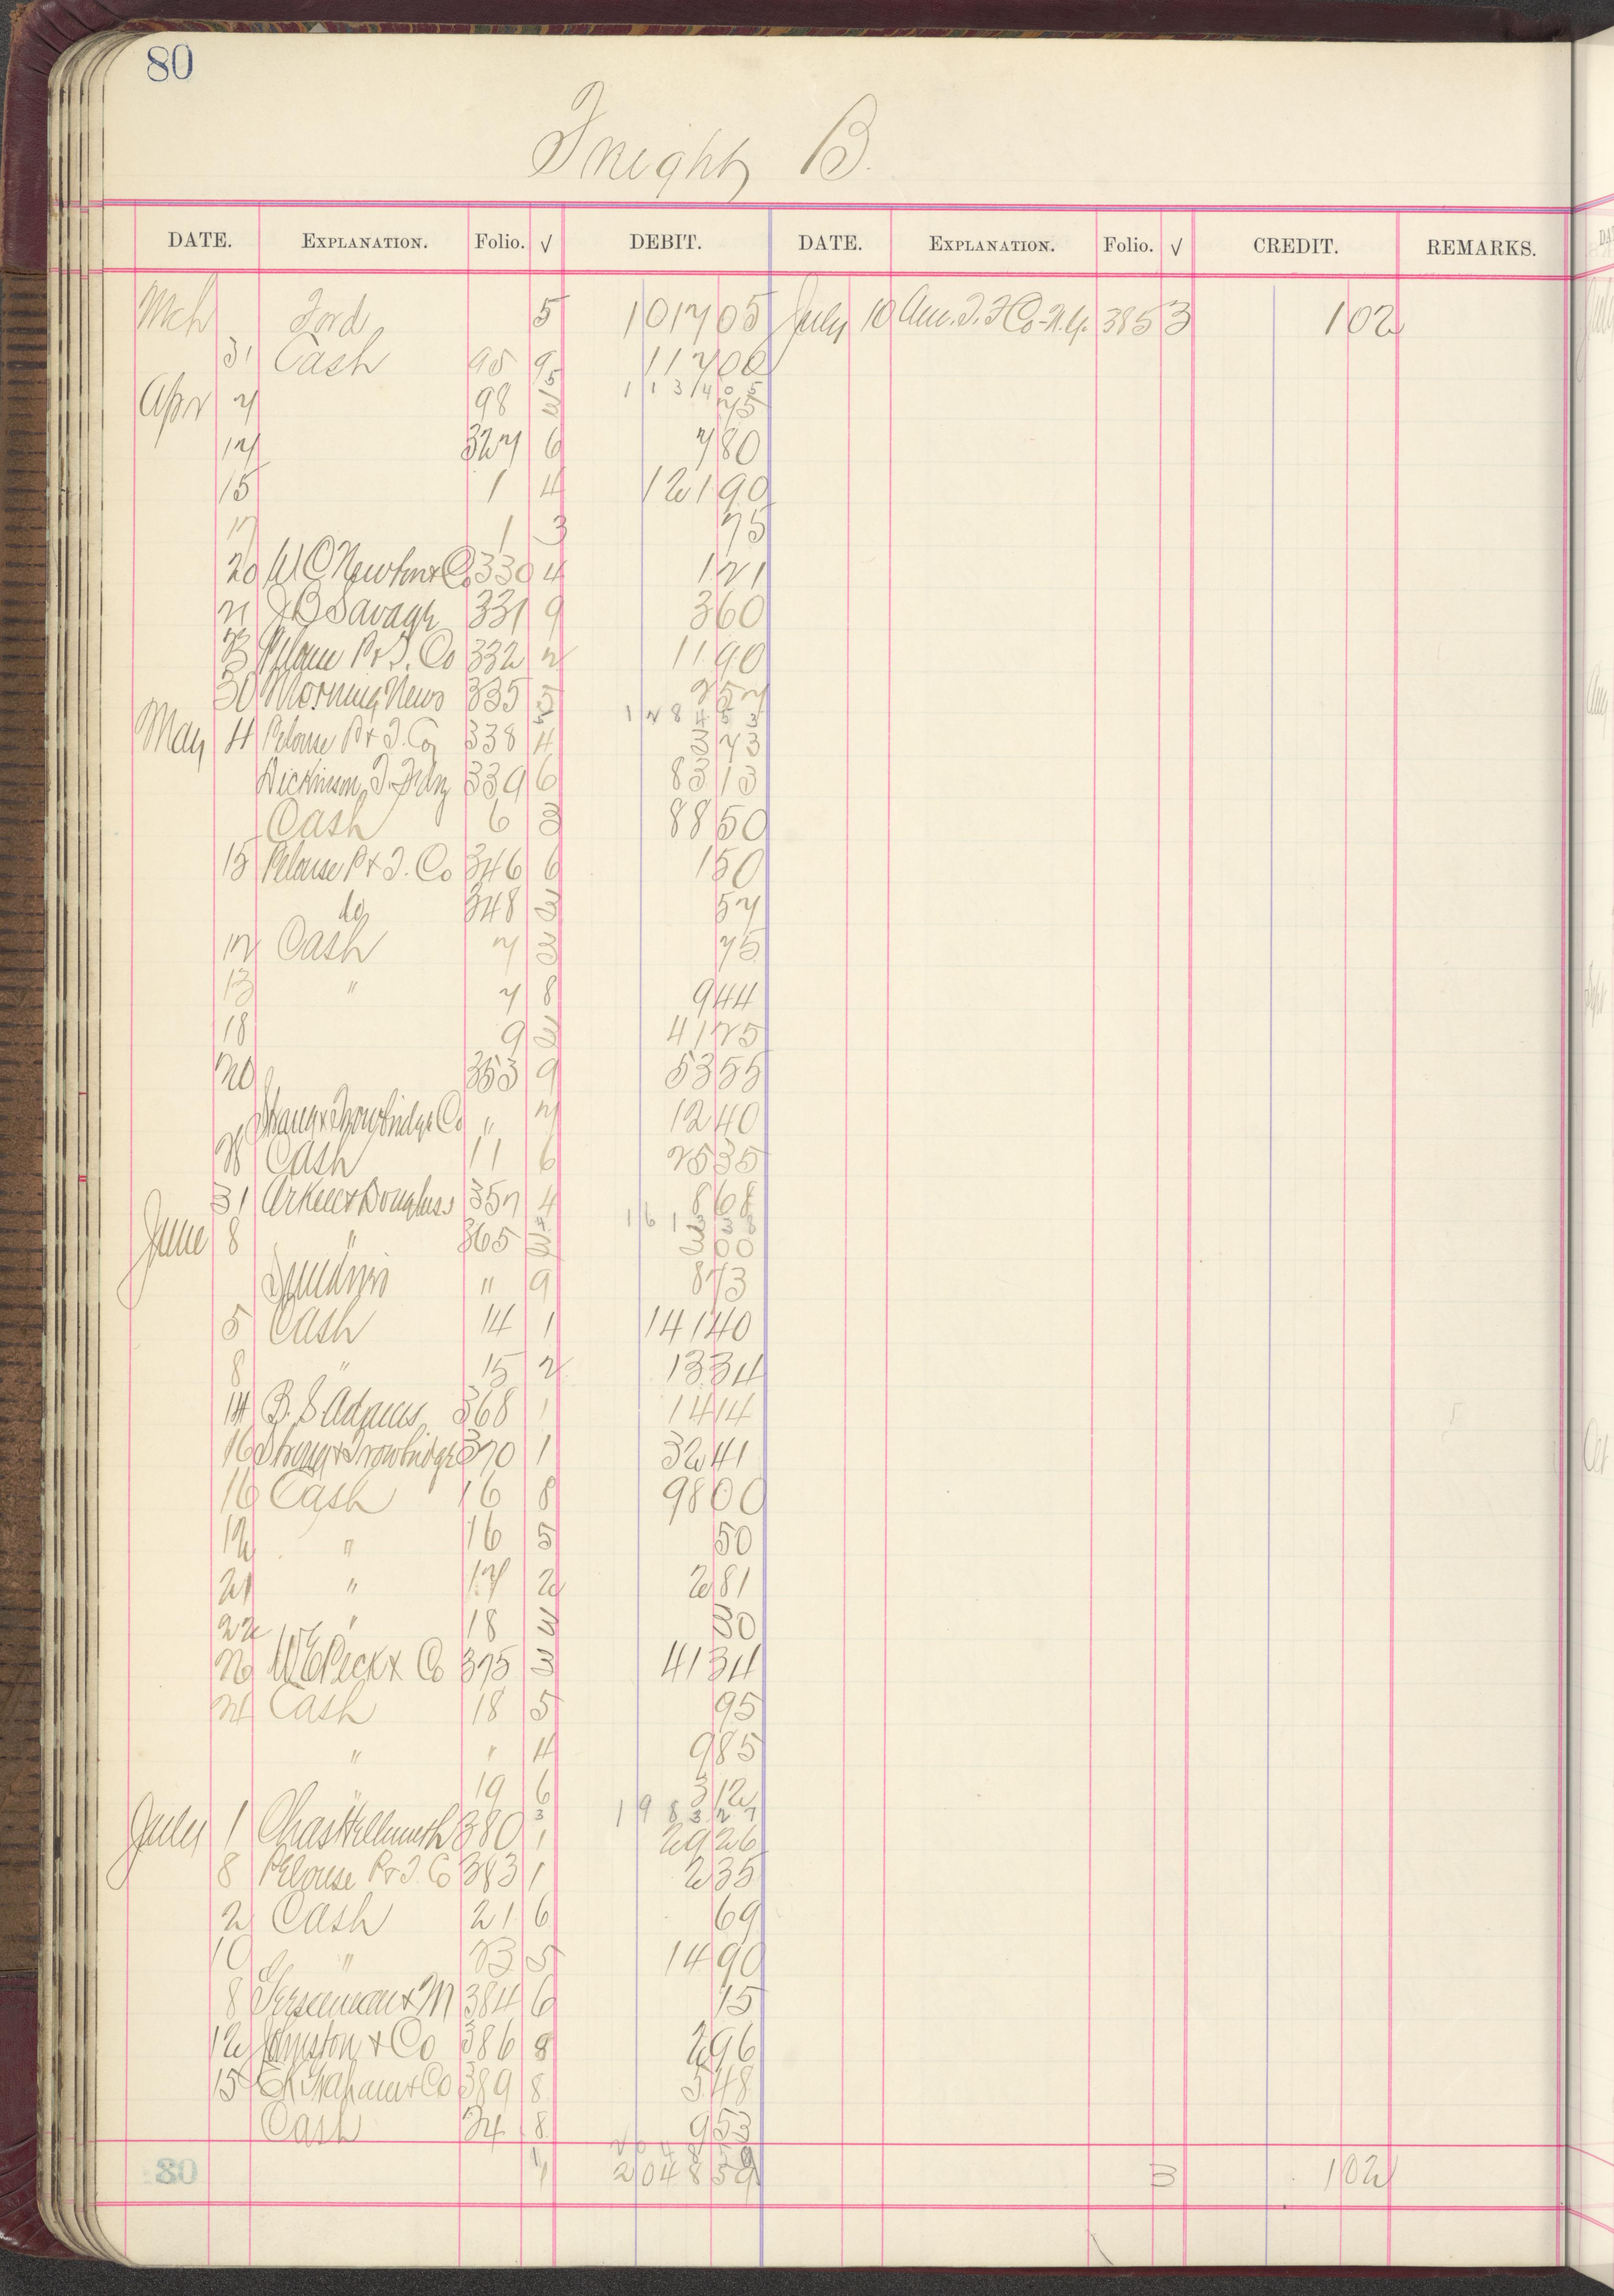 80
Freight B.
DATE. EXPLANATION. Folio. √ DEBIT. DATE. EXPLANATION. Folio. √ CREDIT. REMARKS.
Mch Ford 5 1017 05 July 10 Am. T. F Co. N.Y. 385 3 1 02
31 Cash 95 9 117 00
5 1134 05
Apr 7 98 3 75
14 327 6 7 80
15 1 4 121 90
17 1 3 75
20 W C Newton & Co 330 4 1 21
21 J B Savage 331 9 3 60
23 Pelouse P & T. Co 332 2 11 90
30 Morning News 335 5 2 57
1284 53
May 4 Pelouse P & T. Co 338 4 3 73
Dickinson T. Fdry 339 6 83 13
Cash 6 3 88 50
15 Pelouse P & T. Co 346 6 1 50
do 348 3 57
12 Cash 7 3 75
13 " 7 8 9 44
18 9 3 41 25
20 353 9 53 55
Strang & Trowbridge Co " 7 12 40
28 Cash 11 6 25 35
31 Arkell & Douglass 357 4 8 68
1613 38
June 8 " 365 3 3 00
" 9 8 73
5 Cash 14 1 141 40
8 " 15 2 13 34
14 B. S. Adams 368 1 14 14
16 Strang & Trowbridge 370 1 32 41
16 Cash 16 8 98 00
12 " 16 5 50
21 " 17 2 2 81
22 " 18 3 30
26 W E Peck & Co 375 3 41 34
24 Cash 18 5 95
" " 4 9 85
" 19 6 3 12
3 1983 27
July 1 Chas Hellmuth 380 1 29 26
8 Pelouse P & T. Co 383 1 2 35
2 Cash 21 6 69
10 " 23 5 14 90
8 & M 384 6 15
12 Johnston & Co 386 8 2 96
15 E K Graham & Co 389 8 5 48
Cash 24 8 9 53
80 1 2048 59 3 1 02